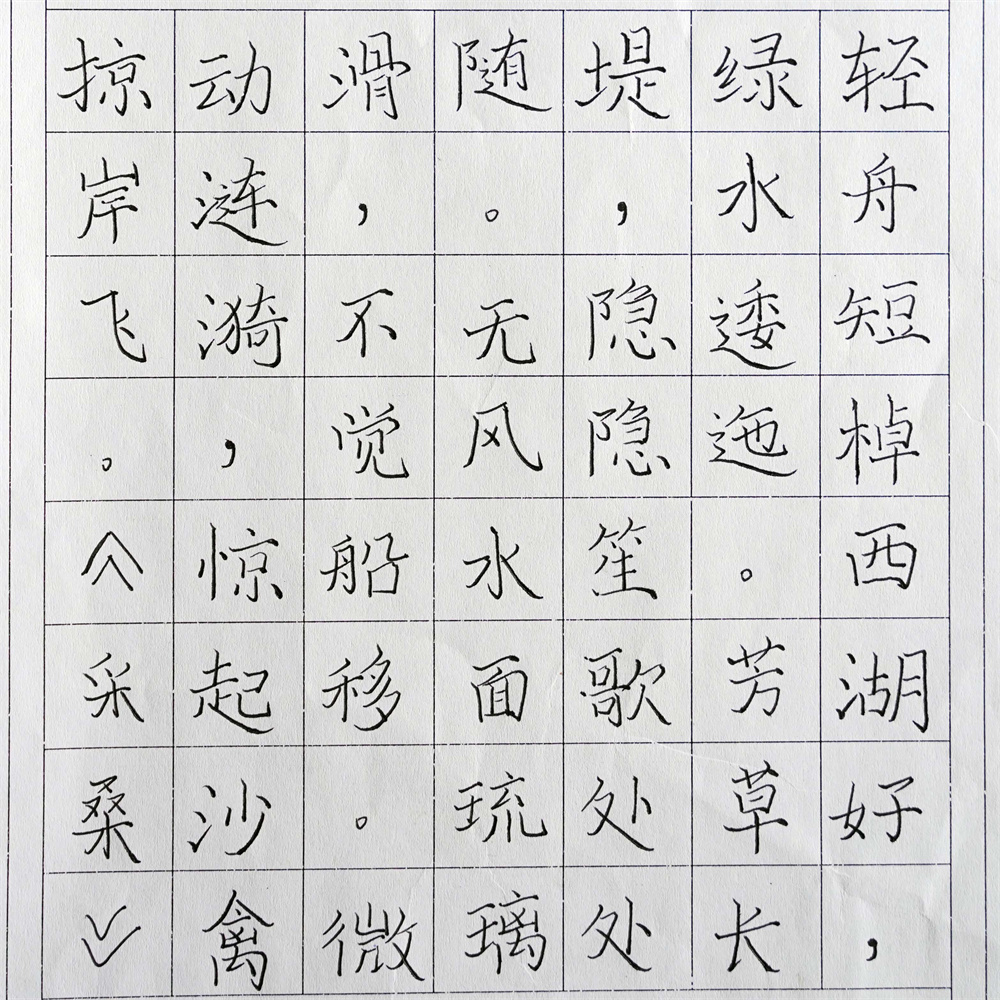 轻舟短棹西湖好，
绿水逶迤。芳草长
堤，隐隐笙歌处处
随。无风水面琉璃
滑，不觉船移。微
动涟漪，惊起沙禽
掠岸飞。《采桑》